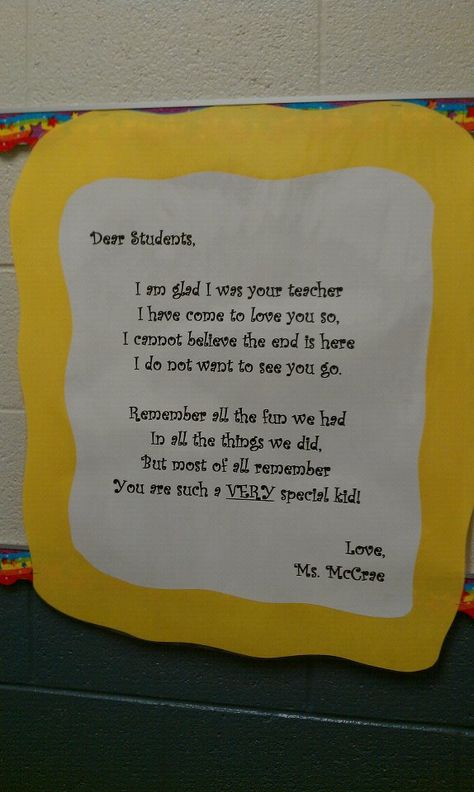 Dear Students,
I am glad I was your teacher
I have come to love you so,
I cannot believe the end is here
I do not want to see you go.
Remember all the fun we had
In all the things we did,
But most of all remember
You are such a VERY special kid!
Love,
Ms. McCrae